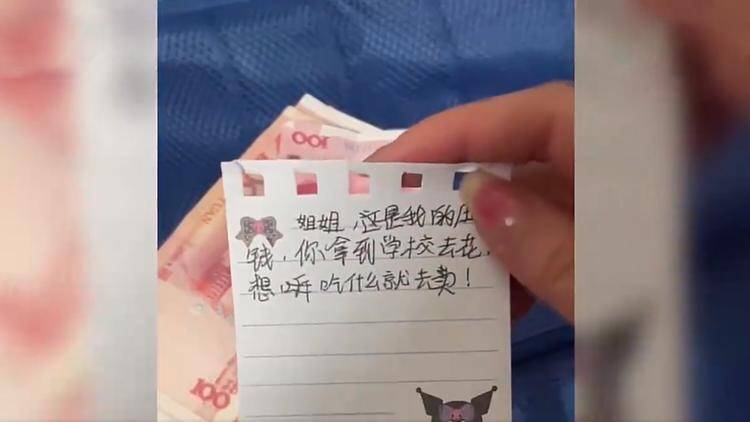 100
YUAN
姐姐,这是我的压
钱,你拿到学校去花,
想吃什么就去卖!
100